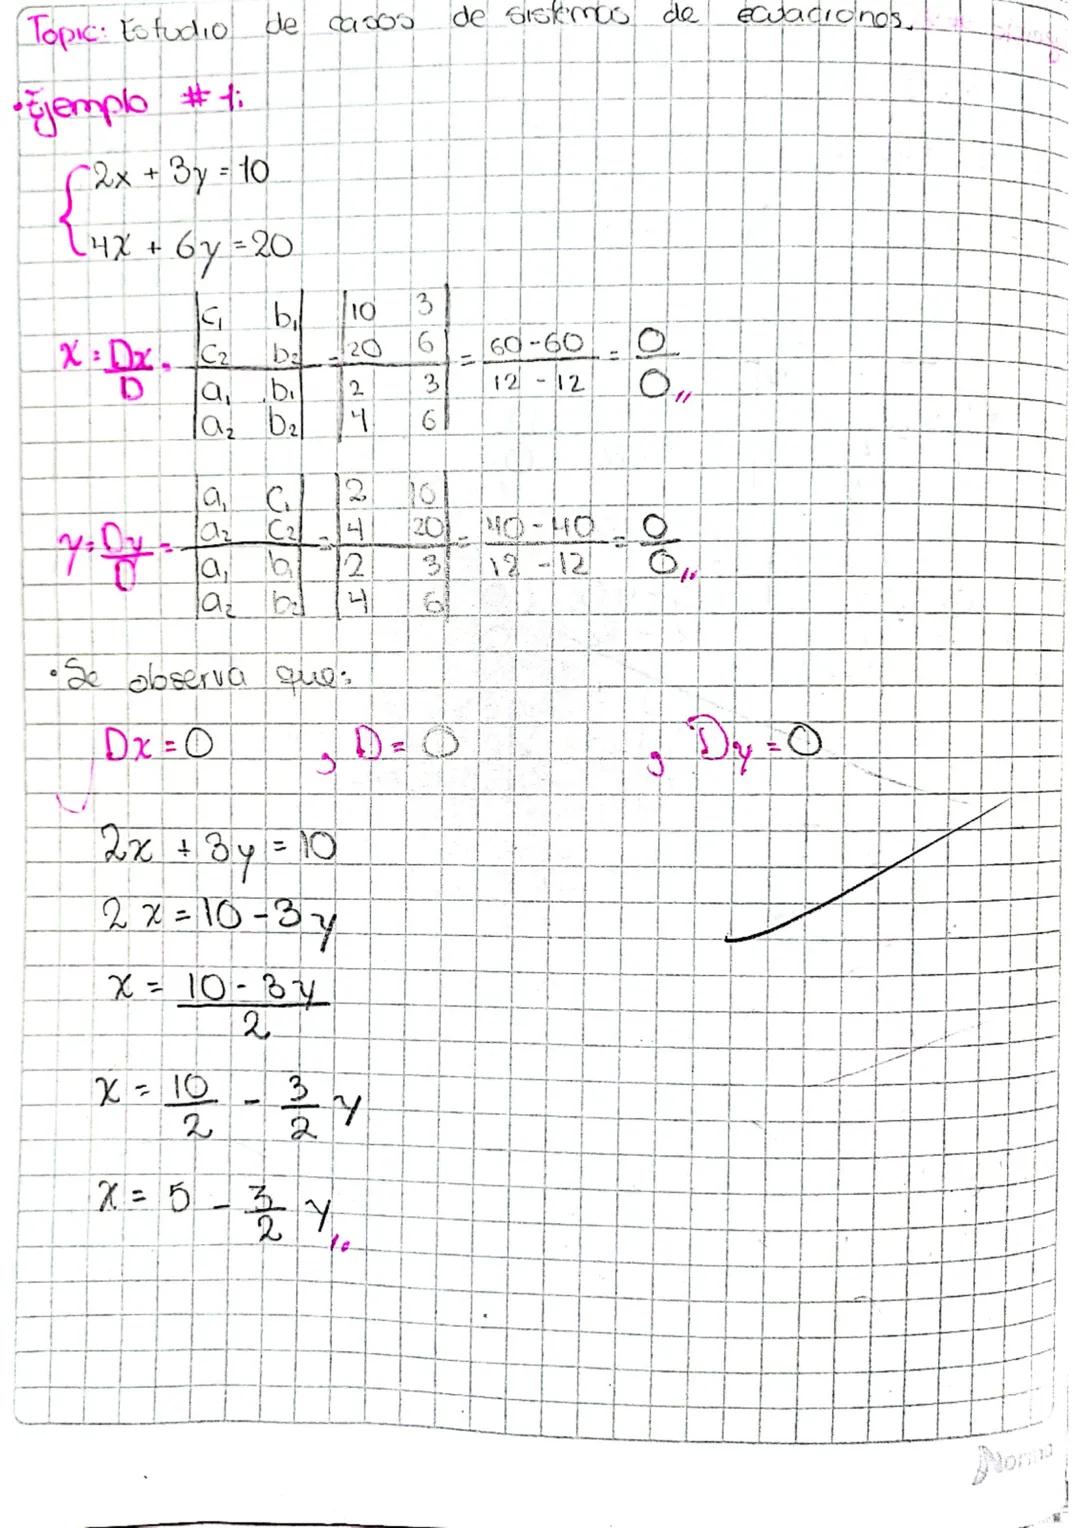 Topic: Estudio de casos de sistemas de ecuaciones.
•Ejemplo #1:
2x + 3y = 10
4x + 6y = 20
x = Dx/D = |c₁ b₁; c₂ b₂| / |a₁ b₁; a₂ b₂| = |10 3; 20 6| / |2 3; 4 6| = (60-60)/(12-12) = 0/0
y = Dy/D = |a₁ c₁; a₂ c₂| / |a₁ b₁; a₂ b₂| = |2 10; 4 20| / |2 3; 4 6| = (40-40)/(12-12) = 0/0
•Se observa que:
Dx = 0 , D = 0 , Dy = 0
2x + 3y = 10
2x = 10 - 3y
x = (10 - 3y)/2
x = 10/2 - 3/2 y
x = 5 - 3/2 y
Norma